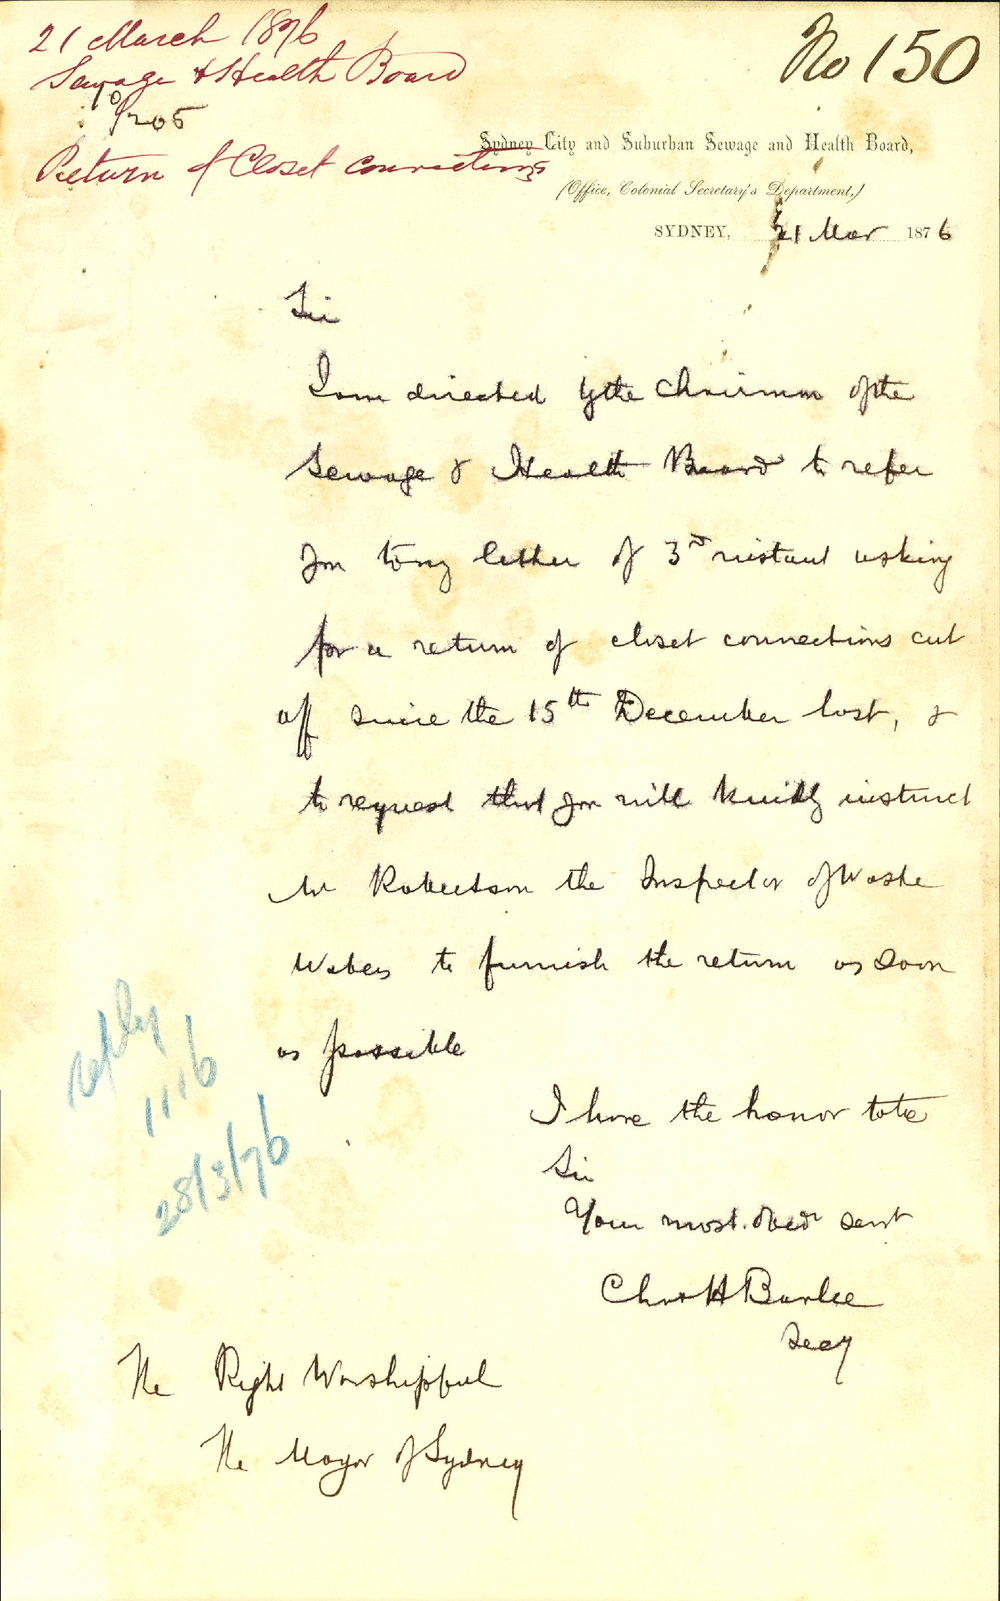 21 March 1876
Sewage & Health Board
No 150
Return of Closet connections
Sydney City and Suburban Sewage and Health Board,
(Office, Colonial Secretary's Department,)
SYDNEY, 21 Mar 1876
Sir
I am directed by the Chairman of the
Sewage & Health Board to refer
you to my letter of 3rd instant asking
for a return of closet connections cut
off since the 15th December last, &
to request that you will kindly instruct
Mr Robertson the Inspector of Waste
Waters to furnish the return as soon
as possible
reply
1116
28/3/76
I have the honor to be
Sir
Your most obedt servt
Chas H Barlee
Secy
The Right Worshipful
The Mayor of Sydney